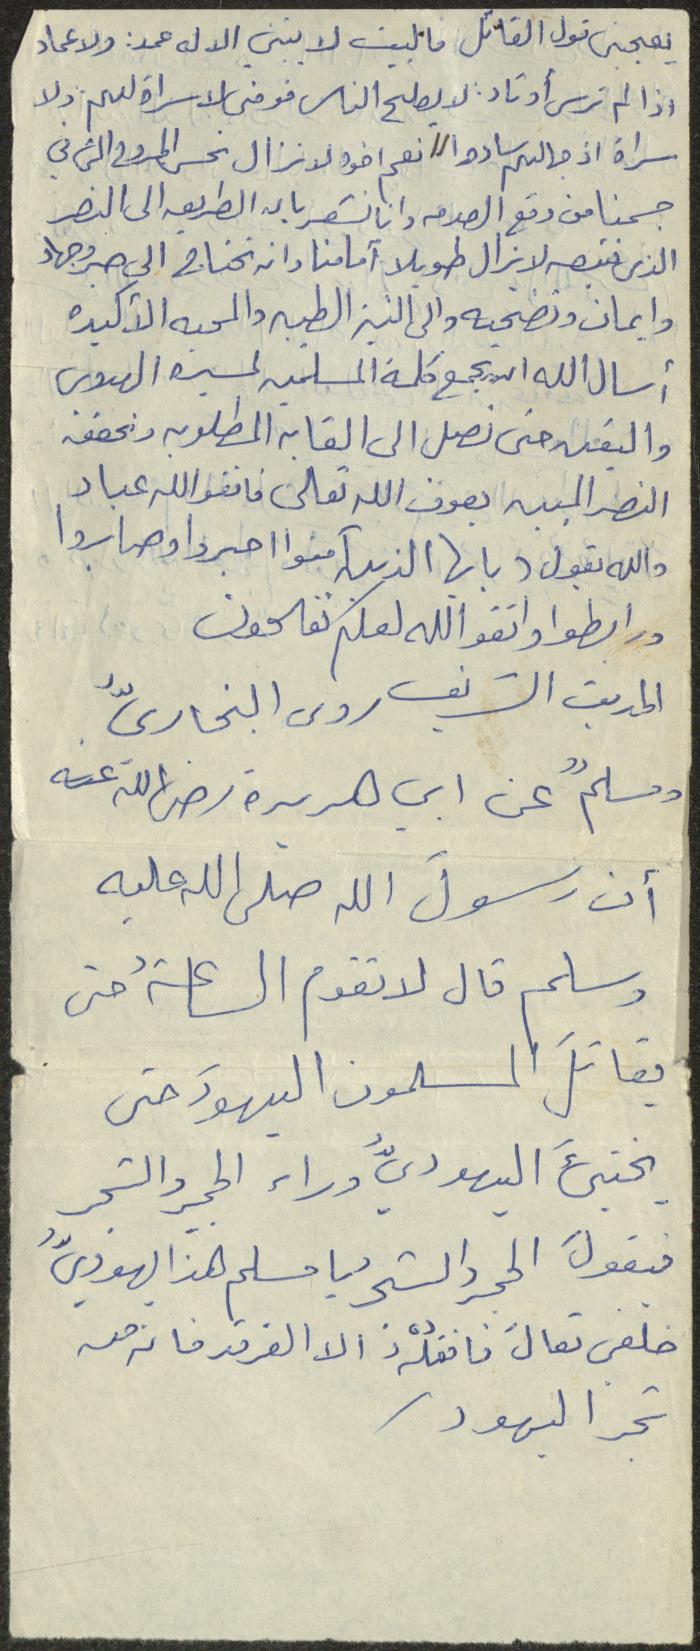 يعجبني قول القائل فالبيت لا يبتنى الا له عمد: ولا عماد
اذا لم ترس أوتاد: لا يصلح الناس فوضى لا سراة لهم: ولا
سراة اذ جهالهم سادوا // نعم اخوه لا نزال نحس الجروح التي في
جسمنا من وقع الصدمه واننا نشعر بان الطريق الى النصر
الذي نبتغيه لا يزال طويلا أمامنا وانه نحتاج الى صبر وجهاد
وايمان وتضحيه والى النيه الطيبه والمحبه الأكيده
أسال الله ان يجمع كلمة المسلمين لمسيرة الهدى
واليقين حتى نصل الى الغاية المطلوبه ونحقق
النصر المبين بعون الله تعالى فاتقوا الله عباد
والله يقول ( يا ايها الذين آمنوا اصبروا وصابروا
ورابطوا واتقوا الله لعلكم تفلحون
الحديث الشريف روى البخاريُّ
ومسلمٌ عن ابي هريرة رضي الله عنه
أن رسولَ الله صلى الله عليه
وسلم قال لا تقوم الساعةُ حتى
يقاتلَ المسلمون اليهودَ حتى
يختبئَ اليهوديُّ وراء الحجر والشجر
فيقولُ الحجر والشجر يا مسلم هذا يهوديٌّ
خلفي تعالَ فاقتلْهُ الا الغرقد فانه من
شجر اليهود /